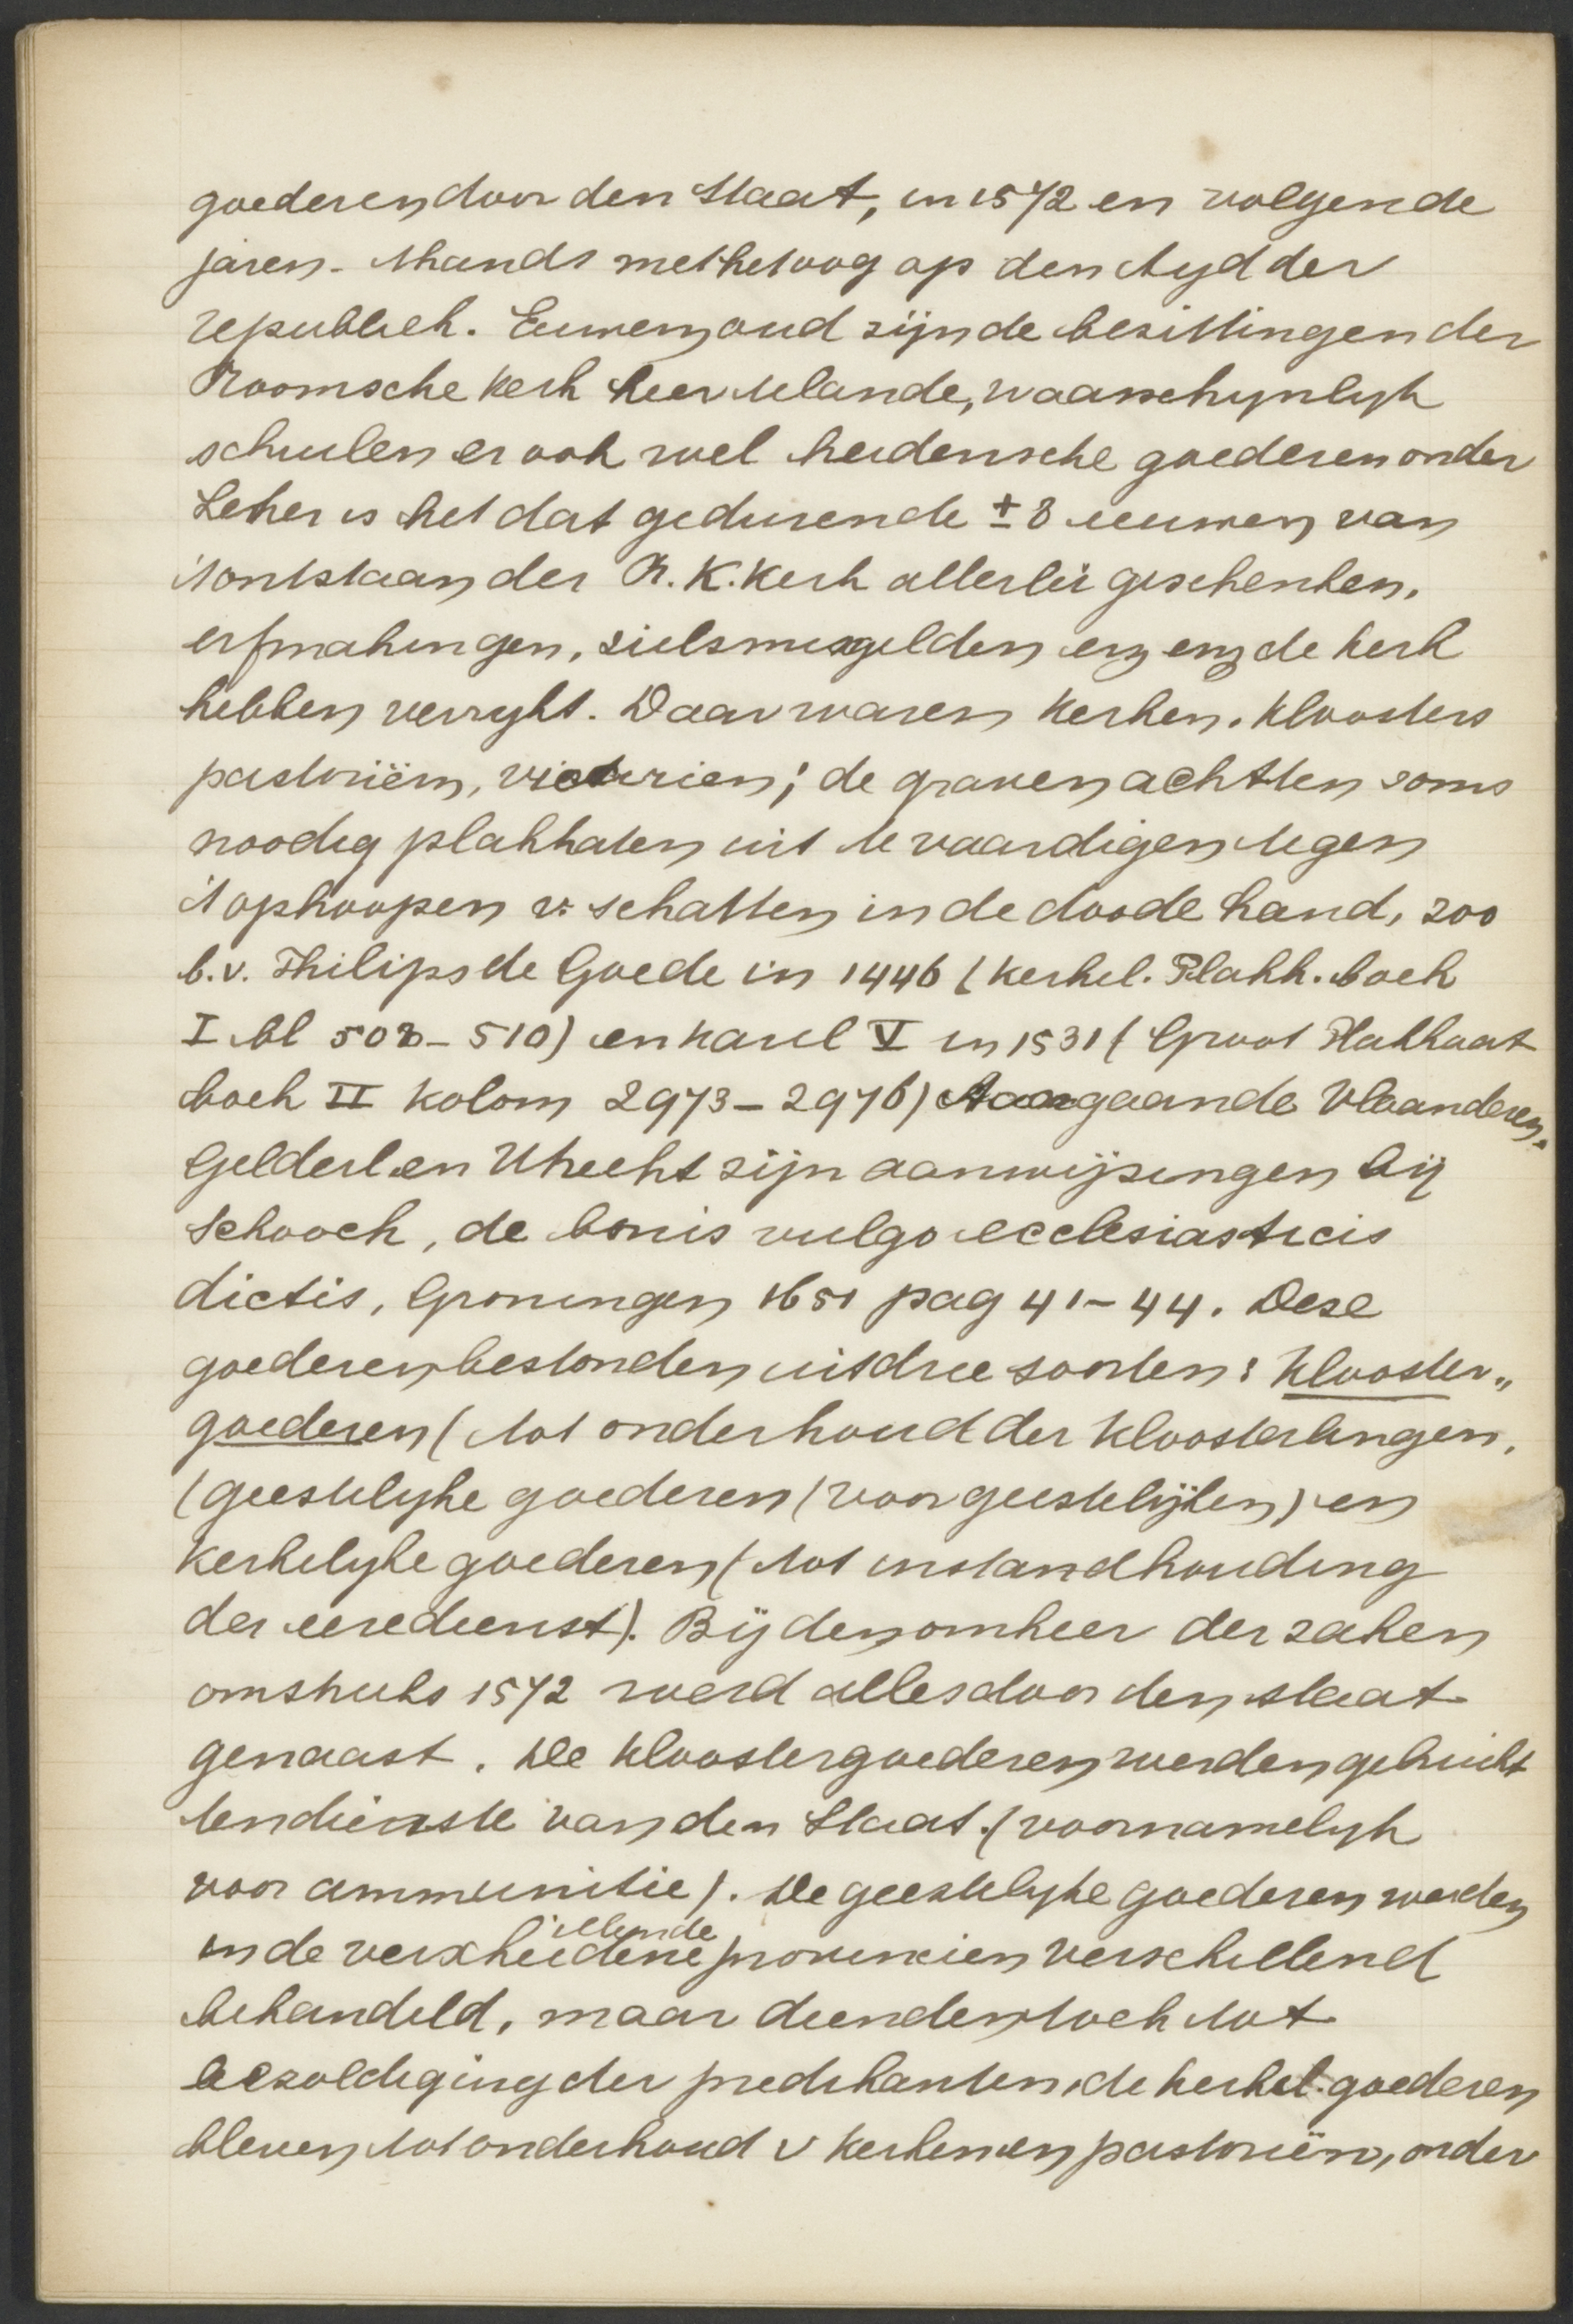 goederen door den Staat, in 1572 en volgende
jaren. Thands met het oog op den tyd der
republiek. Eeuwen oud zijn de bezittingen der
Roomsche kerk hier te lande, waarschynlyk
schuilen er ook wel heidensche goederen onder
Zeker is het dat gedurende ± 8 eeuwen van
't ontstaan der R. K. kerk allerlei geschenken,
erfmakingen, zielsmisgelden enz enz de kerk
hebben verrykt. Daar waren kerken, kloosters
pastoriën, vicarien; de graven achtten soms
noodig plakkaten uit te vaardigen tegen
't ophoopen v. schatten in de doode hand, zoo
b.v. Philips de Goede in 1446 (kerkel. Plakk. boek
I bl 508-510) en Karel V in 1531 (Groot Plakkaat
boek II kolom 2973-2976) Aangaande Vlaanderen,
Gelderl. en Utrecht zijn aanwijzingen bij
Schoock, de bonis vulgo ecclesiasticis
dictis, Groningen 1651 pag 41-44. Deze
goederen bestonden uit drie soorten: klooster„
goederen (tot onderhoud der kloosterlingen,
(geestelyke goederen (voor geestelijken) en
kerkelyke goederen (tot instandhouding
der eeredienst). Bij den omkeer der zaken
omstreeks 1572 werd alles door den staat
genaast. De kloostergoederen werden gebruikt
ten dienste van den Staat. (voornamelyk
voor ammunitie). De geestelyke goederen werden
illende
in de verscheidene provincien verschillend
behandeld, maar dienden toch tot
bezoldiging der predikanten, de kerkel. goederen
bleven tot onderhoud v kerken en pastoriën, onder